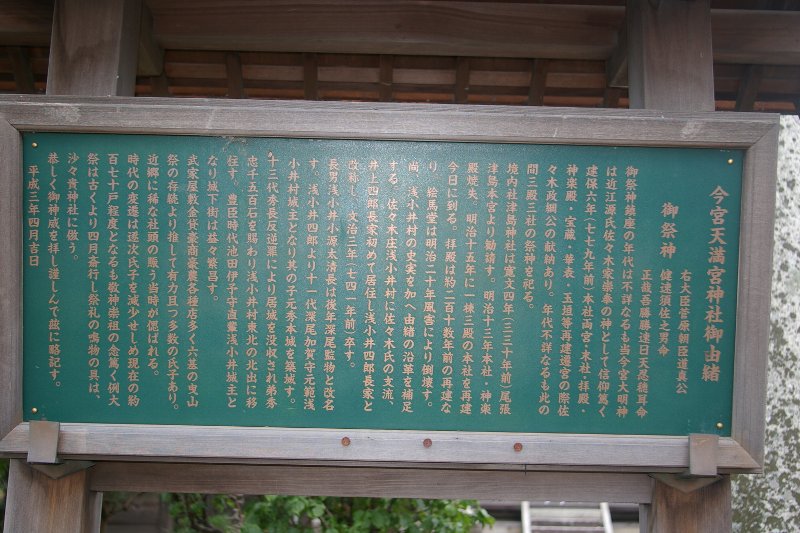 今宮天満宮神社御由緒
御祭神
右大臣菅原朝臣道真公
健速須佐之男命
正哉吾勝勝速日天忍穂耳命
御祭神鎮座の年代は不詳なるも当今宮大明神
は近江源氏佐々木家崇奉の神として信仰篤く
建保六年(七七九年前)本社両宮・末社・拝殿・
神楽殿・宝蔵・華表・玉垣等再建遷宮の際佐
々木政綱公の献納あり。年代不詳なるも此の
間三殿三社の祭神を祀る。
境内社津島神社は寛文四年(三三十年前)尾張
津島本宮より勧請す。明治十三年本社・神楽
殿焼失、明治十五年に一棟三殿の本社を再建
今日に到る。拝殿は約二百十数年前の再建な
り。絵馬堂は明治二十年風害により倒壊す。
尚、浅小井村の史実を加へ由緒の沿革を補足
する。佐々木庄浅小井村に佐々木氏の支流、
井上四郎長家初めて居住し浅小井四郎長家と
改称し、文治三年(七四一年前)卒す。
長男浅小井小源太清長は後年深尾監物と改名
す。浅小井四郎より十一代深尾加賀守元範浅
小井村城主となり其の子元秀本城を築城す。
十三代秀長反逆罪により居城を没収され弟秀
忠千五百石を賜わり浅小井村東北の北出に移
住す。豊臣時代池田伊予守直輩浅小井城主と
なり城下街は益々繁昌す。
武家屋敷金貸豪商豪農各種店多く六基の曳山
祭の存続より推して有力且つ多数の氏子あり。
近郷に稀な社頭の賑う当時が偲ばれる。
時代の変遷は逐次氏子を減少せしめ現在の約
百七十戸程度となるも敬神崇祖の念篤く例大
祭は古くより四月斎行し祭礼の鳴物の具は、
沙々貴神社に倣う。
恭しく御神威を拝し謹しんで茲に略記す。
平成三年四月吉日